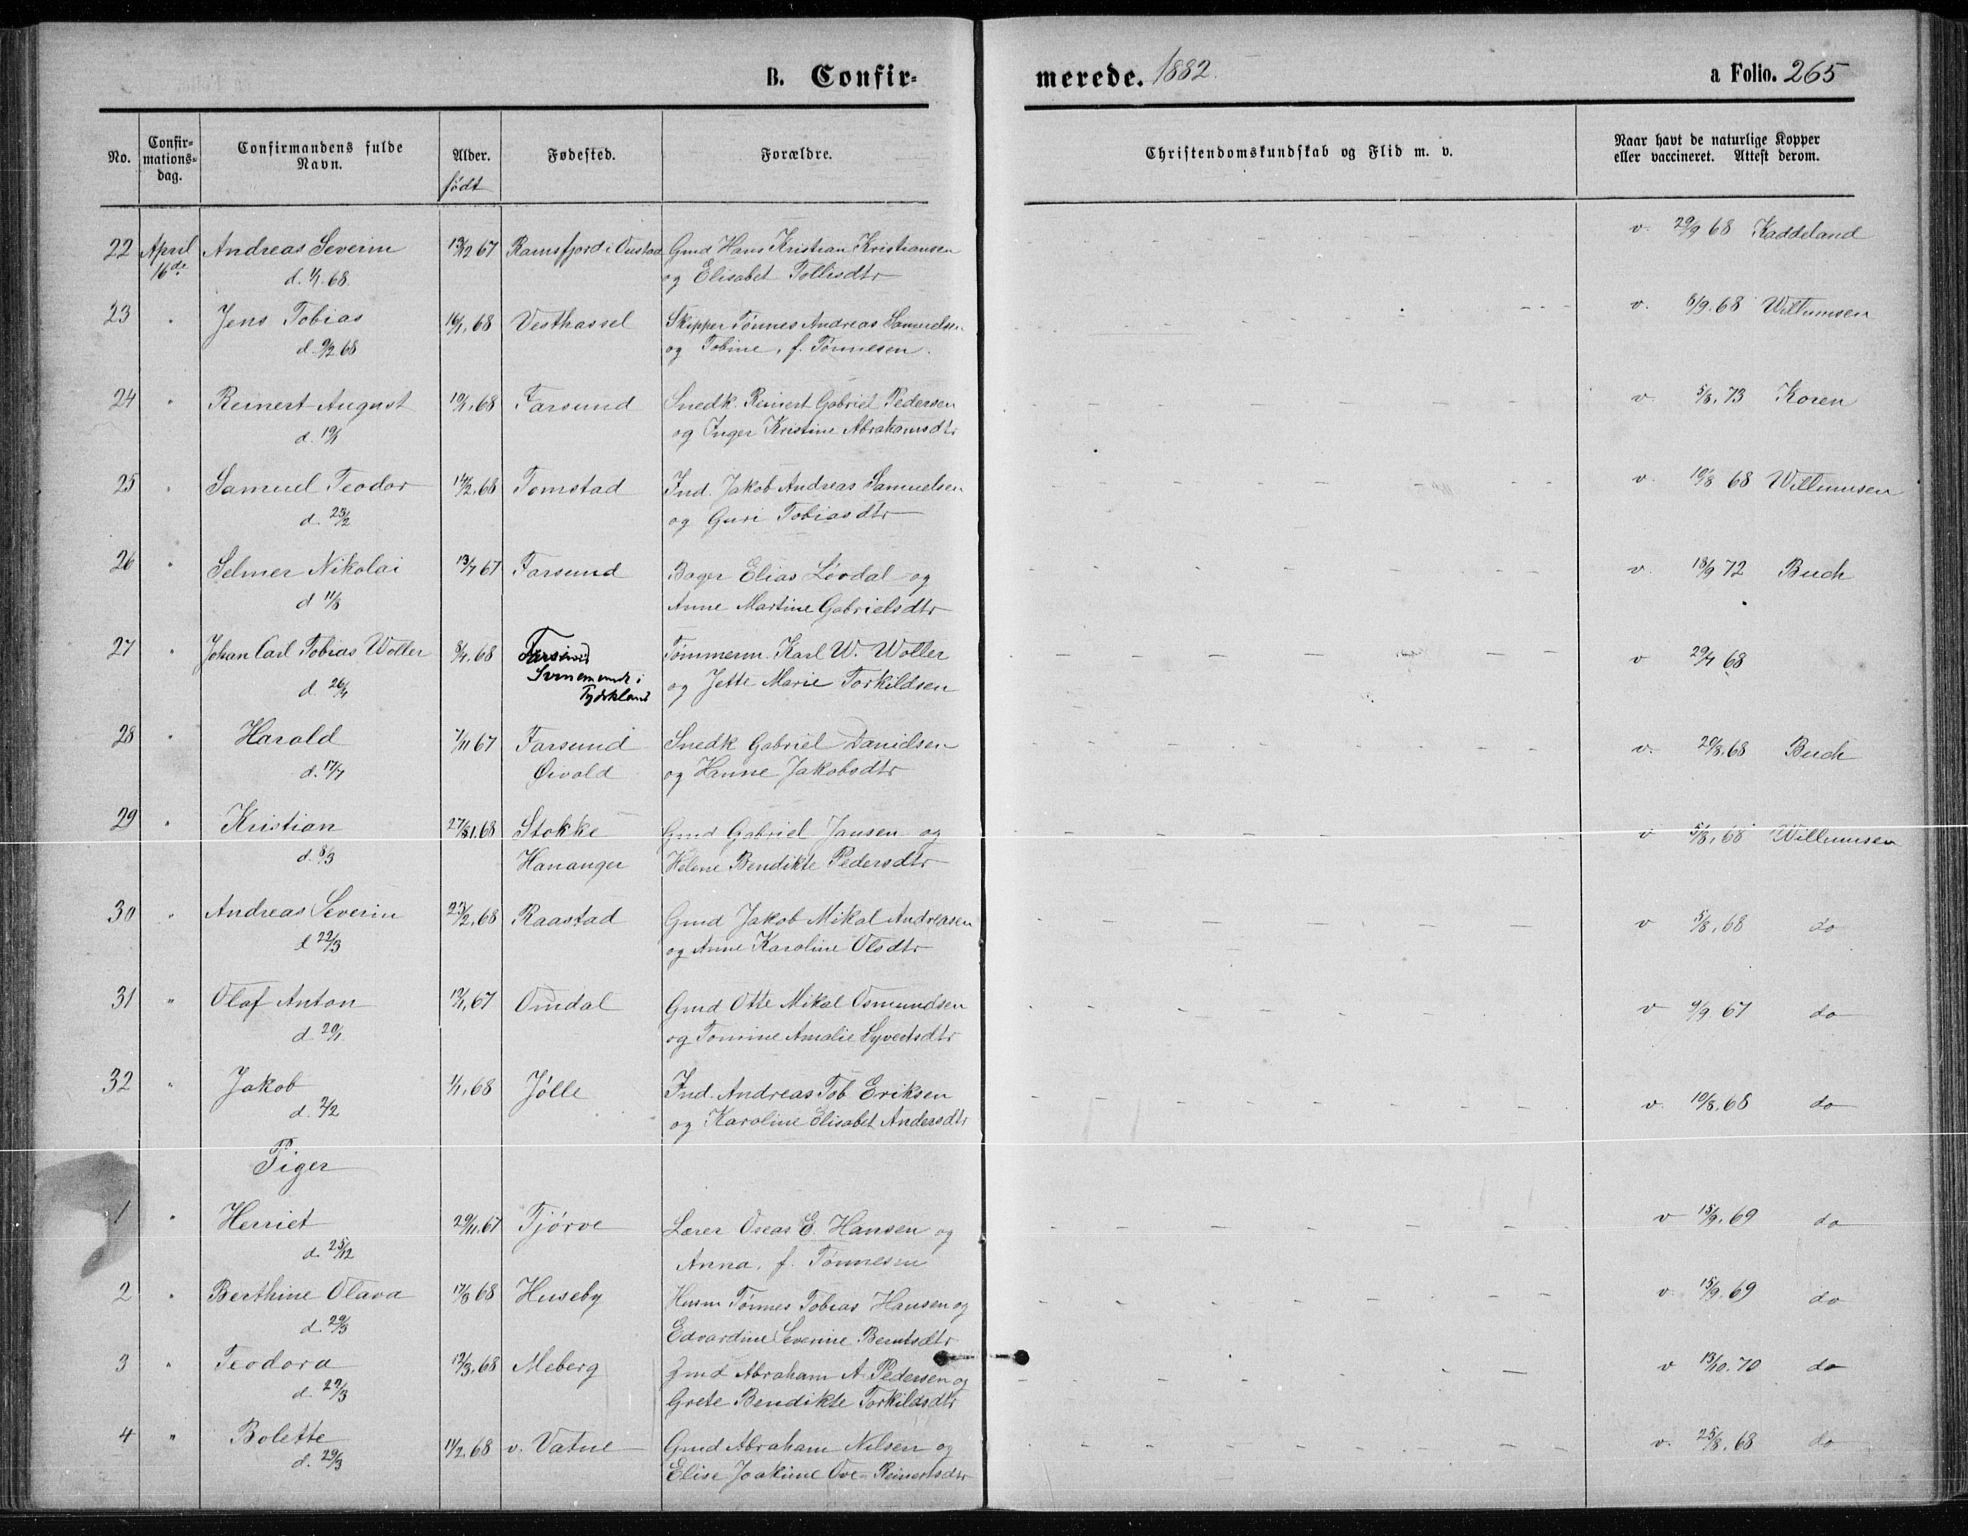 B. Confir-
merede. 1882.
a Folio. 265
No.
Confir-
mations-
dag.
Confirmandens fulde
Navn.
Alder.
født
Fødested.
Forældre.
Christendomskundskab og Flid m. v.
Naar havt de naturlige Kopper
eller vaccineret. Attest derom.
22 April Andreas Severin 67 Ramsfjord i Gmd Hans Kristian Kristiansen v. 29/9 68 Kaddeland
16de d. 1/1. 68. og Elisabet Tollisdtr
23 " Jens Tobias 16/1. 68 Vesthassel Skipper Tønnes Andreas Samuelsen v. 8/9. 68 Willumsen
d. 9/2 68 og Tobine, f. Tønnesen.
24 " Reinert August 68 Farsund Snedk. Reinert Gabriel Pedersen v. 5/8. 73 Koren
d. og Inger Kristine Abrahamsdtr
25 " Samuel Teodor 68 Tomstad Ind. Jakob Andreas Samuelsen v. 10/8 68 Willumsen
d. 23/2 og Guri Tobiasdtr
26 " Selmer Nikolai 13/7 67 Farsund Bager Elias Løvdal og v. 18/9 72 Buch
d 11/8 Anne Martine Gabrielsdtr
27 " Johan Carl Tobias Wolter 68 Farsund Tømmerm. Karl W. Wolter v 68
Svinemünde i
d. 26/4 Tydskland og Jette Marie Torkildsen
28 " Harald 7/11 67 Farsund Snedk Gabriel Danielsen v. 20/8. 68 Buch
d. 17/7 Øivold og Hanne Jakobsdtr
29 " Kristian 68 Stokke Gmd Gabriel Jansen og v 5/8. 68 Willumsen
d. 8/3 Hananger Helene Bendikte Pedersdtr
30 " Andreas Severin 23/2. 68 Raastad Gmd Jakob Mikal Andreasen v 5/8. 68 do
22/3 og Anne Karoline Olsdtr
31 " Olaf Anton 67 Omdal Gmd Otte Mikal Osmundsen v 9/9. 67 do
d. 20/1 og Tomine Amalie Syvertsdtr
32 " Jakob 1/1. 68 Jølle Ind. Andreas Tob Eriksen v. 10/8. 68 do
d. 2/2 og Karoline Elisabet Andersdtr
Piger
1 " Herriet 29/11. 67 Tjørve Lærer Oseas E. Hansen og v 15/9. 69 do
d. 25/12 Anna, f. Tønnesen
2 " Berthine Olava 68 Huseby Husm Tønnes Tobias Hansen og v. 15/9. 69 do
d. 29/3 Edvardine Severine Berntsdtr
3 " Teodora 12/3. 68 Meberg Gmd Abraham A Pedersen og v 13/10. 70 do
d. 27/3 Grete Bendikte Torkildsdtr
4 " Bolette 11/2. 68 v. Vatne Gmd Abraham Nilsen og v. 25/8. 68 do
d. 29/3 Elise Joakime Ove- Reinertsdtr